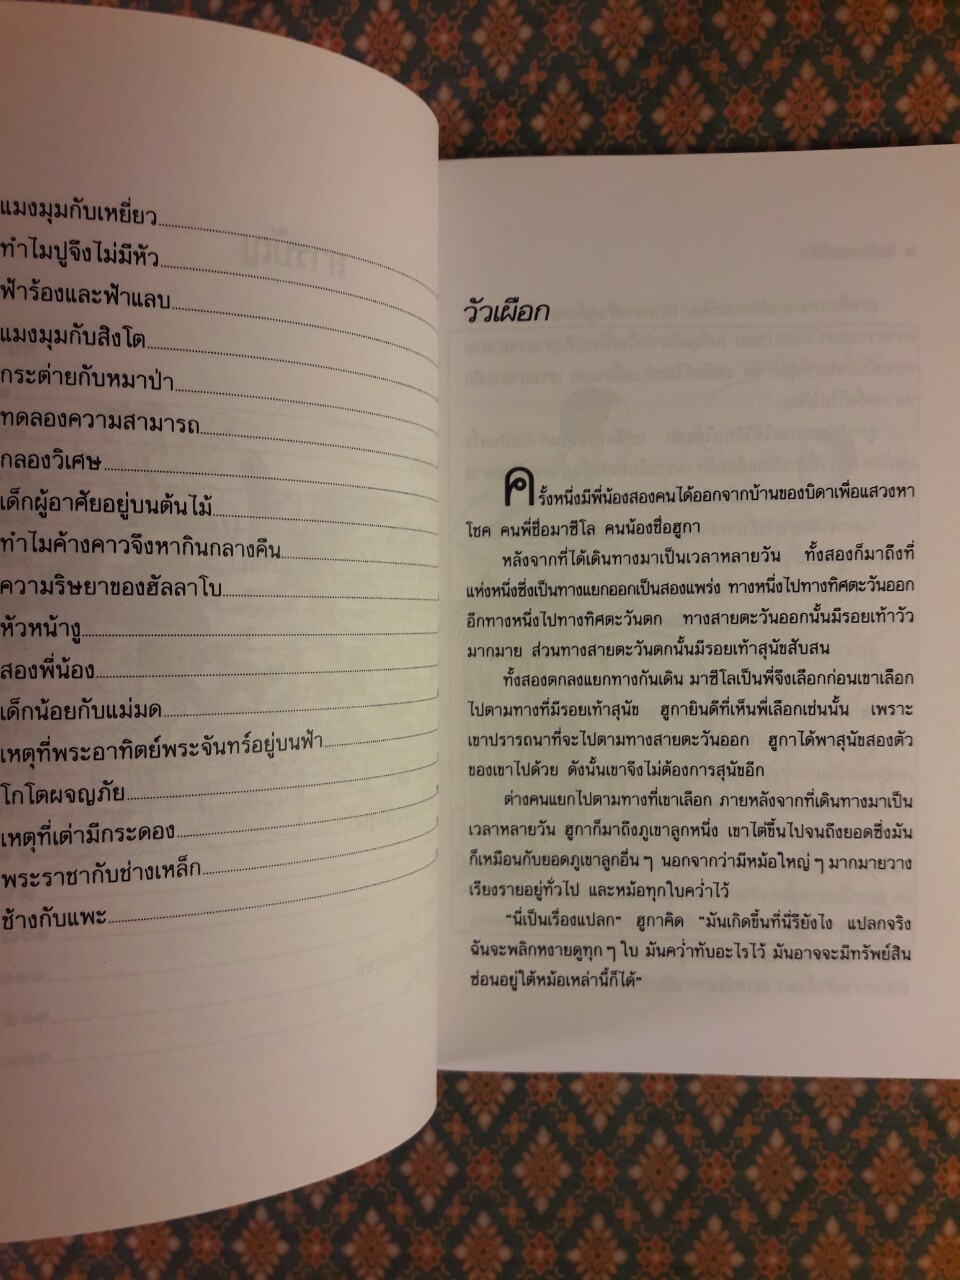 แมงมุมกับเหยี่ยว
ทำไมปูจึงไม่มีหัว
ฟ้าร้องและฟ้าแลบ
แมงมุมกับสิงโต
กระต่ายกับหมาป่า
ทดลองความสามารถ
กลองวิเศษ
เด็กผู้อาศัยอยู่บนต้นไม้
ทำไมค้างคาวจึงหากินกลางคืน
ความริษยาของฮัลลาโบ
หัวหน้างู
สองพี่น้อง
เด็กน้อยกับแม่มด
เหตุที่พระอาทิตย์พระจันทร์อยู่บนฟ้า
โกโตผจญภัย
เหตุที่เต่ามีกระดอง
พระราชากับช่างเหล็ก
ช้างกับแพะ
วัวเผือก
ครั้งหนึ่งมีพี่น้องสองคนได้ออกจากบ้านของบิดาเพื่อแสวงหา
โชค คนพี่ชื่อมาซีโล คนน้องชื่อฮูกา
หลังจากที่ได้เดินทางมาเป็นเวลาหลายวัน ทั้งสองก็มาถึงที่
แห่งหนึ่งซึ่งเป็นทางแยกออกเป็นสองแพร่ง ทางหนึ่งไปทางทิศตะวันออก
อีกทางหนึ่งไปทางทิศตะวันตก ทางสายตะวันออกนั้นมีรอยเท้าวัว
มากมาย ส่วนทางสายตะวันตกนั้นมีรอยเท้าสุนัขสับสน
ทั้งสองตกลงแยกทางกันเดิน มาซีโลเป็นพี่จึงเลือกก่อนเขาเลือก
ไปตามทางที่มีรอยเท้าสุนัข ฮูกายินดีที่เห็นพี่เลือกเช่นนั้น เพราะ
เขาปรารถนาที่จะไปตามทางสายตะวันออก ฮูกาได้พาสุนัขสองตัว
ของเขาไปด้วย ดังนั้นเขาจึงไม่ต้องการสุนัขอีก
ต่างคนแยกไปตามทางที่เขาเลือก ภายหลังจากที่เดินทางมาเป็น
เวลาหลายวัน ฮูกาก็มาถึงภูเขาลูกหนึ่ง เขาไต่ขึ้นไปจนถึงยอดซึ่งมัน
ก็เหมือนกับยอดภูเขาลูกอื่น ๆ นอกจากว่ามีหม้อใหญ่ ๆ มากมายวาง
เรียงรายอยู่ทั่วไป และหม้อทุกใบคว่ำไว้
“นี่เป็นเรื่องแปลก” ฮูกาคิด “มันเกิดขึ้นที่นี่รึยังไง แปลกจริง
ฉันจะพลิกหงายดูทุก ๆ ใบ มันคว่ำทับอะไรไว้ มันอาจจะมีทรัพย์สิน
ซ่อนอยู่ใต้หม้อเหล่านี้ก็ได้”